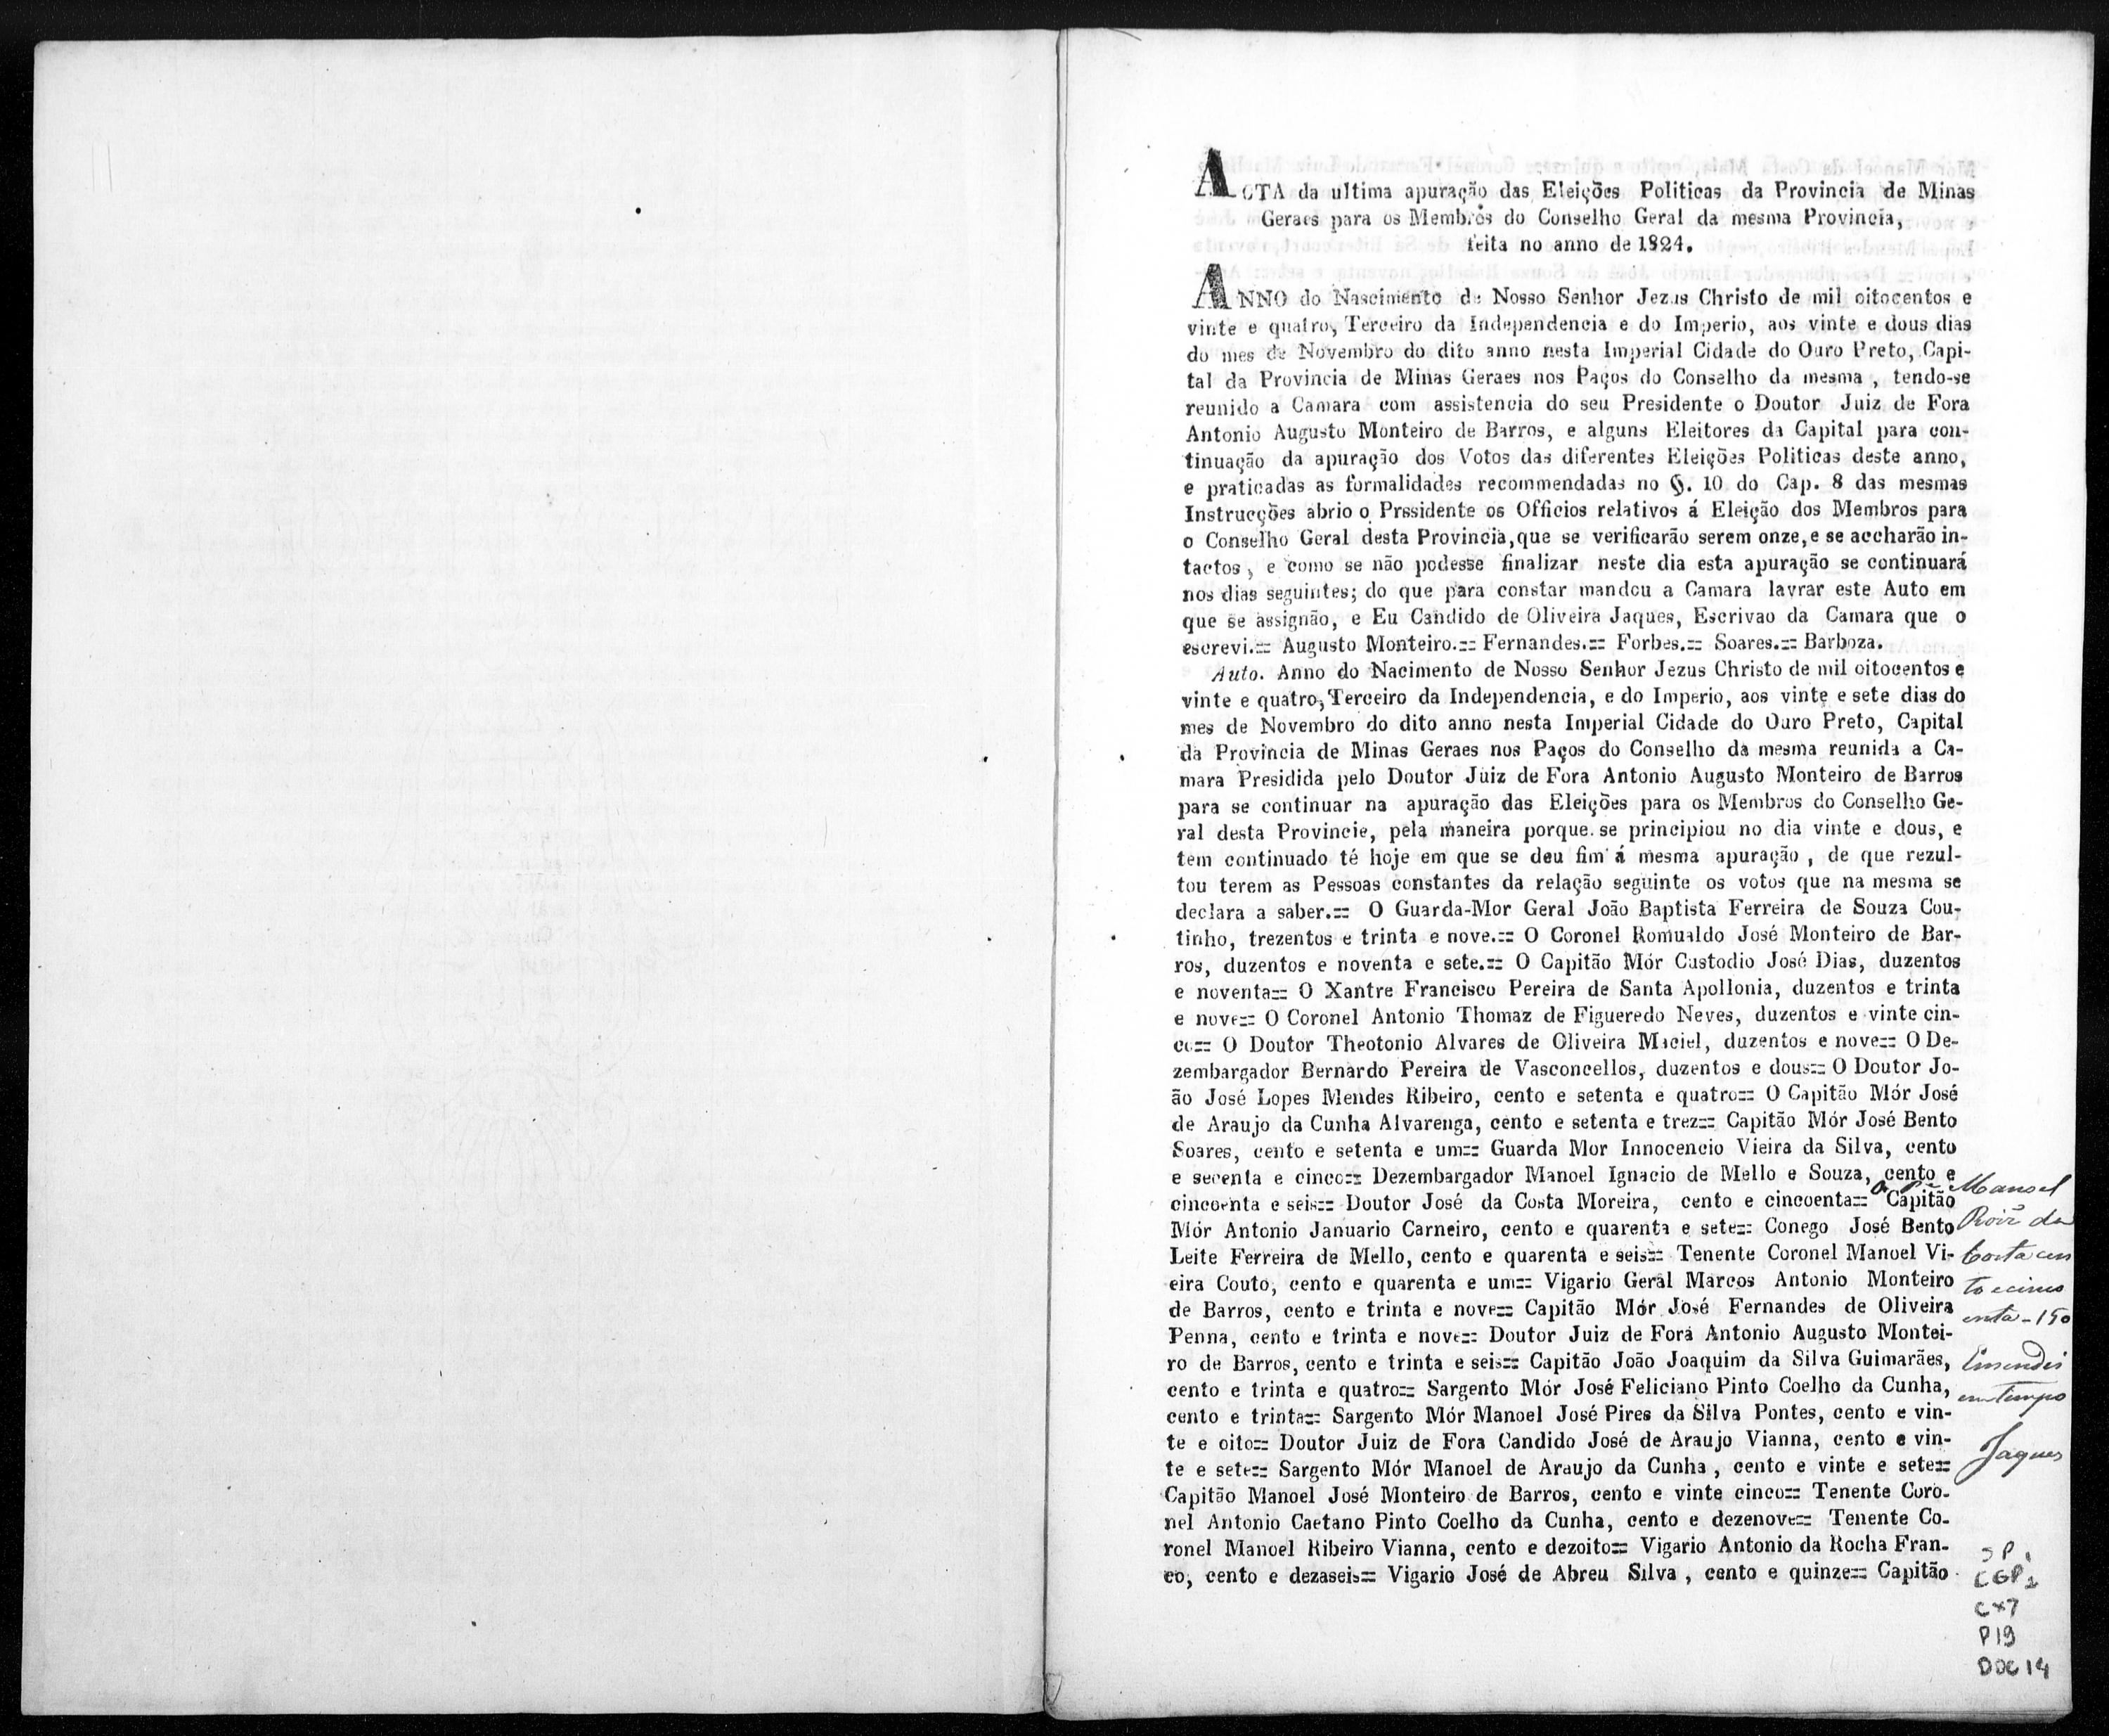 ACTA da ultima apuração das Eleições Politicas da Provincia de Minas
Geraes para os Membros do Conselho Geral da mesma Provincia,
feita no anno de 1824.
ANNO do Nascimento de Nosso Senhor Jezus Christo de mil oitocentos e
vinte e quatro, Terceiro da Independencia e do Imperio, aos vinte e dous dias
do mes de Novembro do dito anno nesta Imperial Cidade do Ouro Preto, Capi-
tal da Provincia de Minas Geraes nos Paços do Conselho da mesma , tendo-se
reunido a Camara com assistencia do seu Presidente o Doutor Juiz de Fora
Antonio Augusto Monteiro de Barros, e alguns Eleitores da Capital para con-
tinuação da apuração dos Votos das diferentes Eleições Politicas deste anno,
e praticadas as formalidades recommendadas no §. 10 do Cap. 8 das mesmas
Instrucções abrio o Prssidente os Officios relativos á Eleição dos Membros para
o Conselho Geral desta Provincia, que se verificarão serem onze, e se accharão in-
tactos , e como se não podesse finalizar neste dia esta apuração se continuará
nos dias seguintes; do que para constar mandou a Camara lavrar este Auto em
que se assignão, e Eu Candido de Oliveira Jaques, Escrivao da Camara que o
escrevi.== Augusto Monteiro.== Fernandes.== Forbes.== Soares.== Barboza.
Auto. Anno do Nacimento de Nosso Senhor Jezus Christo de mil oitocentos e
vinte e quatro, Terceiro da Independencia, e do Imperio, aos vinte e sete dias do
mes de Novembro do dito anno nesta Imperial Cidade do Ouro Preto, Capital
da Provincia de Minas Geraes nos Paços do Conselho da mesma reunida a Ca-
mara Presidida pelo Doutor Juiz de Fora Antonio Augusto Monteiro de Barros
para se continuar na apuração das Eleições para os Membros do Conselho Ge-
ral desta Provincie, pela maneira porque se principiou no dia vinte e dous, e
tem continuado té hoje em que se deu fim á mesma apuração , de que rezul-
tou terem as Pessoas constantes da relação seguinte os votos que na mesma se
declara a saber.== O Guarda-Mor Geral João Baptista Ferreira de Souza Cou-
tinho, trezentos e trinta e nove.== O Coronel Romualdo José Monteiro de Bar-
ros, duzentos e noventa e sete.== O Capitão Mór Custodio José Dias, duzentos
e noventa== O Xantre Francisco Pereira de Santa Apollonia, duzentos e trinta
e nove== O Coronel Antonio Thomaz de Figueredo Neves, duzentos e vinte cin-
co== O Doutor Theotonio Alvares de Oliveira Maciel, duzentos e nove== O De-
zembargador Bernardo Pereira de Vasconcellos, duzentos e dous== O Doutor Jo-
ão José Lopes Mendes Ribeiro, cento e setenta e quatro== O Capitão Mór José
de Araujo da Cunha Alvarenga, cento e setenta e trez== Capitão Mór José Bento
Soares, cento e setenta e um== Guarda Mor Innocencio Vieira da Silva, cento
e secenta e cinco== Dezembargador Manoel Ignacio de Mello e Souza, cento e
cincoenta e seis== Doutor José da Costa Moreira, cento e cincoenta== Capitão
Mór Antonio Januario Carneiro, cento e quarenta e sete== Conego José Bento
Leite Ferreira de Mello, cento e quarenta e seis== Tenente Coronel Manoel Vi-
eira Couto, cento e quarenta e um== Vigario Geral Marcos Antonio Monteiro
de Barros, cento e trinta e nove== Capitão Mór José Fernandes de Oliveira
Penna, cento e trinta e nove== Doutor Juiz de Fora Antonio Augusto Montei-
ro de Barros, cento e trinta e seis== Capitão João Joaquim da Silva Guimarães,
cento e trinta e quatro== Sargento Mór José Feliciano Pinto Coelho da Cunha,
cento e trinta== Sargento Mór Manoel José Pires da Silva Pontes, cento e vin-
te e oito== Doutor Juiz de Fora Candido José de Araujo Vianna, cento e vin-
te e sete== Sargento Mór Manoel de Araujo da Cunha , cento e vinte e sete==
Capitão Manoel José Monteiro de Barros, cento e vinte cinco== Tenente Coro-
nel Antonio Caetano Pinto Coelho da Cunha, cento e dezenove== Tenente Co-
ronel Manoel Ribeiro Vianna, cento e dezoito== Vigario Antonio da Rocha Fran-
co, cento e dezaseis== Vigario José de Abreu Silva , cento e quinze== Capitão
O Pe Manoel
Roiz da
Costa cen
to e cinco
enta - 150
Emendei
em tempo
Jaques
SP
CGP1
CX7
P19
DOC 14